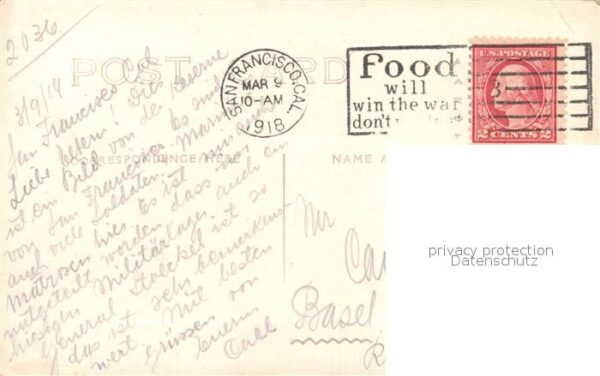 2036.
POST CARD
SAN FRANCISCO, CAL.
MAR 9
10-AM
1918
Food
will
win the war
don't
U.S. POSTAGE
2 CENTS 2
CORRESPONDENCE HERE
NAME A
3/9/18
San Francisco Cal
Liebe Eltern! Dies
ist ein Bild von der
von San Francisco. Es
auch viele Soldaten
Matrosen hier. Es ist
mitgeteilt worden dass
hiesigen Militärlager auch ein
General Stoeckel ist so
das ist sehr bemerkens-
wert. Mit besten
grüssen von
Euerm
Carl
Mr
Ca
Basel
privacy protection
Datenschutz